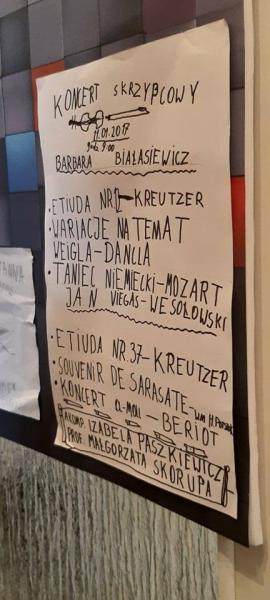 KONCERT SKRZYPCOWY
17.01.2017
BARBARA BIAŁASIEWICZ
• ETIUDA NR KREUTZER
• WARIACJE NA TEMAT
WEIGLA-DANCLA
• TANIEC NIEMIECKI-MOZART
JAN VIEGAS-WESOŁOWSKI
• ETIUDA NR.37-KREUTZER
• SOUVENIR DE SARASATE-
• KONCERT a-moll - BERIOT
AKOMP. IZABELA PASZKIEWICZ
PROF. MAŁGORZATA SKORUPA